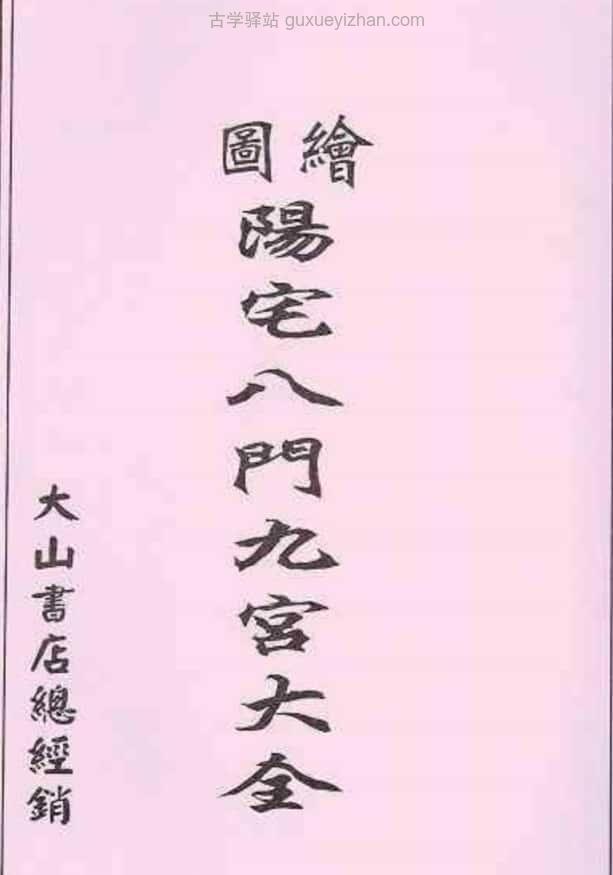 古学驿站 guxueyizhan.com
繪圖
陽宅八門九宮大全
大山書店總經銷